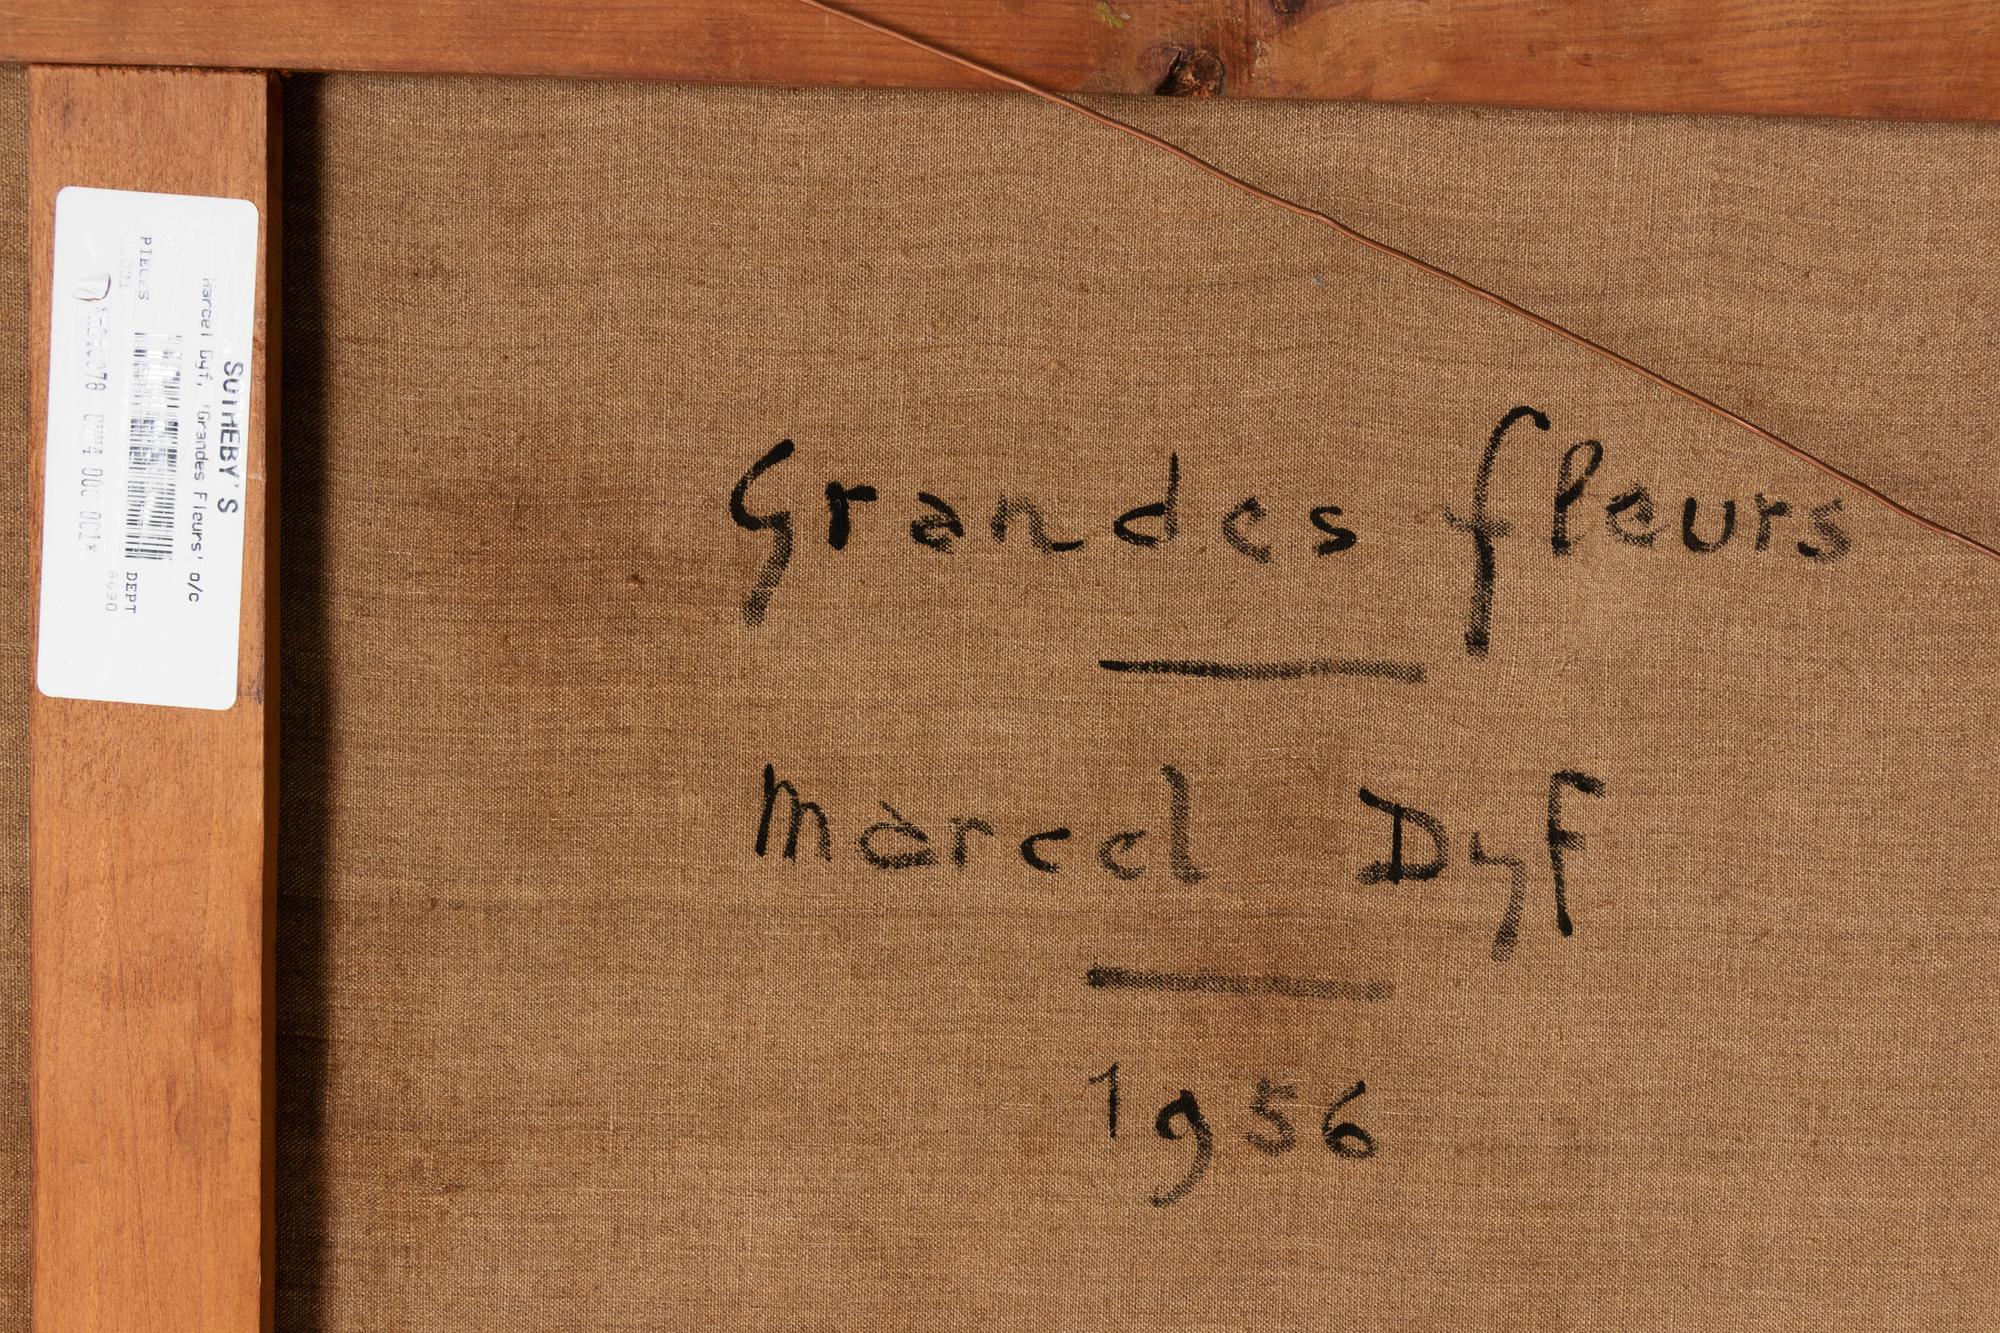 Grandes fleurs
Marcel Dyf
1956
SOTHEBY'S
Marcel Dyf, 'Grandes Fleurs' o/c
PIECES DEPT